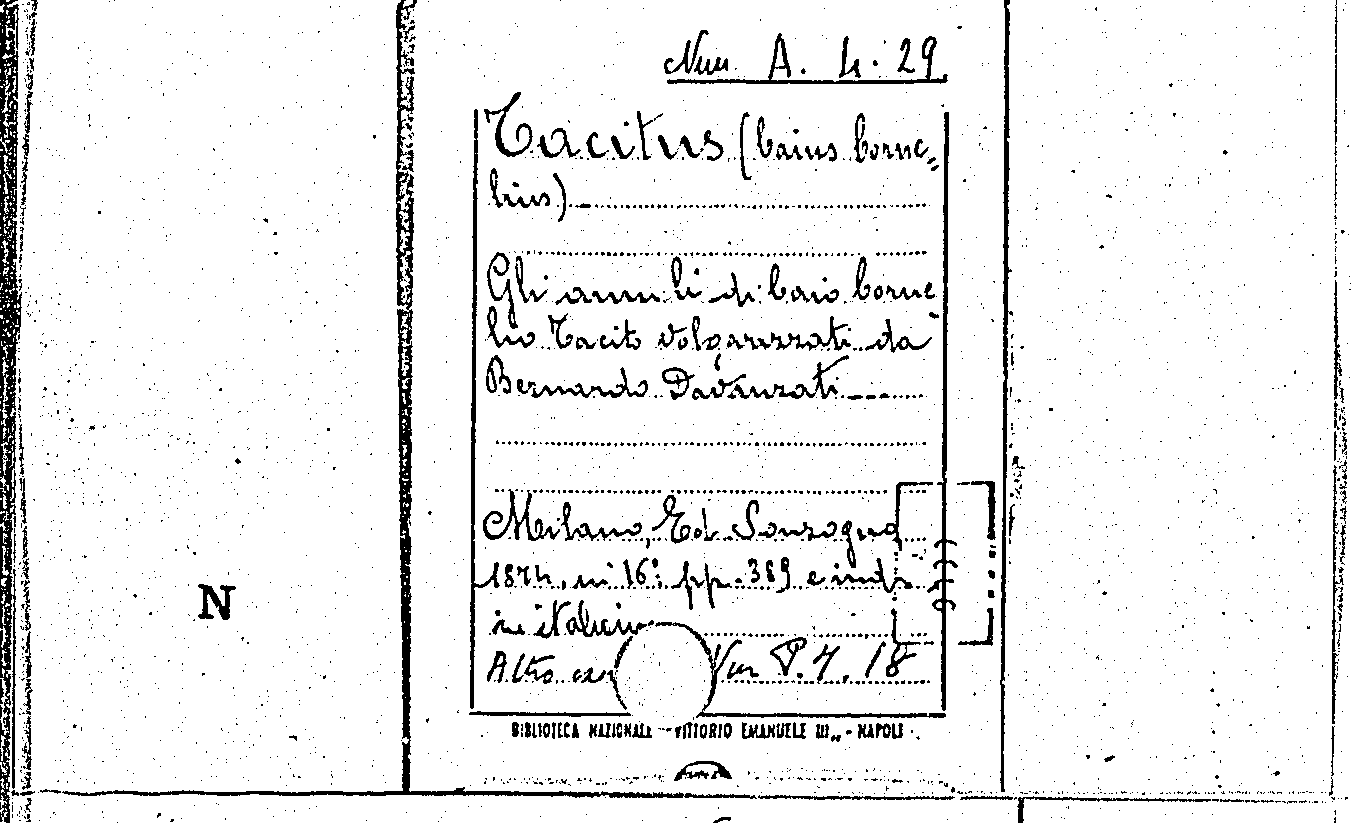 Nun A. 4. 29
Tacitus (Caius Corne„
lius)
Gli annali di Caio Corne
lio Tacito volgarizzati da
Bernardo Davanzati
Milano, Ed Sonzogno
1874, in 16° pp. 389 e ind
in italiano
Altro P. 7. 18
BIBLIOTECA NAZIONALE "VITTORIO EMANUELE III„ - NAPOLI
N